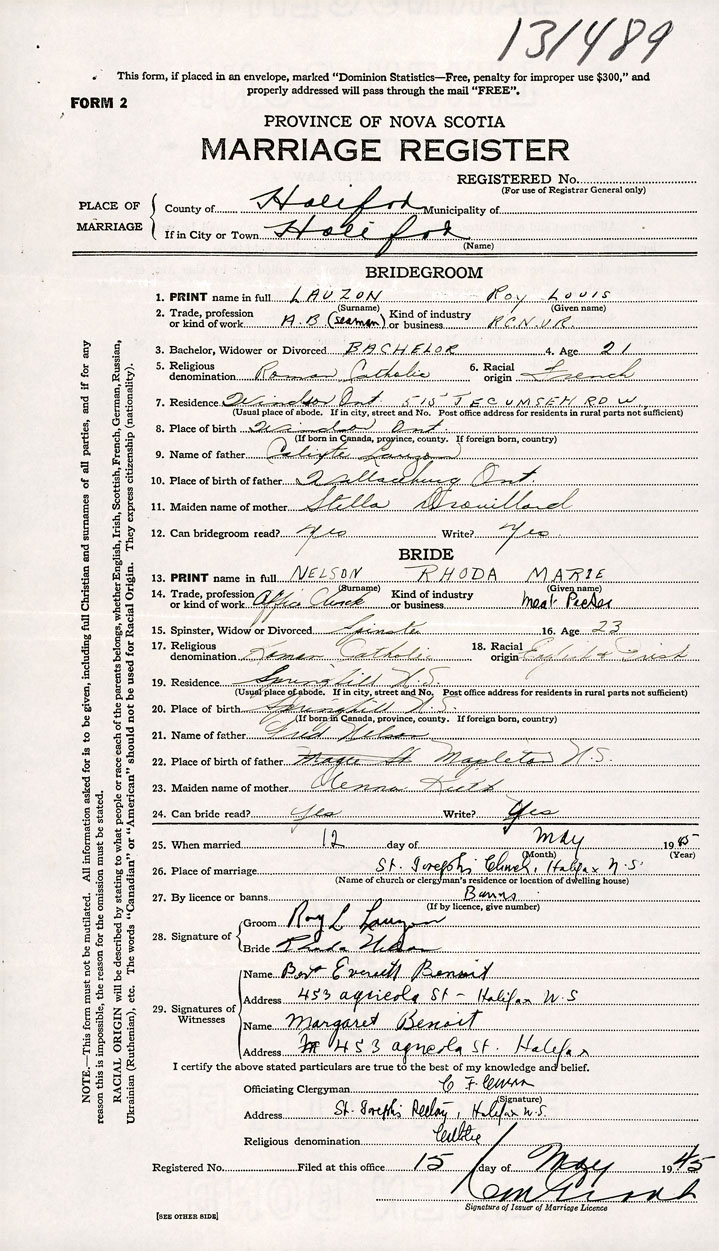 131489
This form, if placed in an envelope, marked “Dominion Statistics—Free, penalty for improper use $300,” and
properly addressed will pass through the mail “FREE”.
FORM 2
PROVINCE OF NOVA SCOTIA
MARRIAGE REGISTER
REGISTERED No.
(For use of Registrar General only)
PLACE OF MARRIAGE
County of Halifax Municipality of
If in City or Town Halifax
(Name)
BRIDEGROOM
1. PRINT name in full LAUZON ROY LOUIS
(Surname) (Given name)
2. Trade, profession or kind of work A.B (seaman) Kind of industry or business R.C.N.V.R.
3. Bachelor, Widower or Divorced BACHELOR 4. Age 21
5. Religious denomination Roman Catholic 6. Racial origin French
7. Residence Windsor Ont. 515 TECUMSEH ROW
(Usual place of abode. If in city, street and No. Post office address for residents in rural parts not sufficient)
8. Place of birth Windsor Ont.
(If born in Canada, province, county. If foreign born, country)
9. Name of father Calixte Lauzon
10. Place of birth of father Wallaceburg Ont.
11. Maiden name of mother Stella Drouillard
12. Can bridegroom read? Yes Write? Yes
BRIDE
13. PRINT name in full NELSON RHODA MARIE
(Surname) (Given name)
14. Trade, profession or kind of work Office Clerk Kind of industry or business Meat Packer
15. Spinster, Widow or Divorced Spinster 16. Age 23
17. Religious denomination Roman Catholic 18. Racial origin English & Irish
19. Residence Springhill N.S.
(Usual place of abode. If in city, street and No. Post office address for residents in rural parts not sufficient)
20. Place of birth Springhill N.S.
(If born in Canada, province, county. If foreign born, country)
21. Name of father Fred Nelson
22. Place of birth of father Mapleton N.S.
23. Maiden name of mother
24. Can bride read? Yes Write? Yes
25. When married 12 day of May 1945
(Month) (Year)
26. Place of marriage St. Joseph's Church, Halifax N.S.
(Name of church or clergyman's residence or location of dwelling house)
27. By licence or banns Banns
(If by licence, give number)
28. Signature of
Groom Roy L Lauzon
Bride Rhoda Nelson
29. Signatures of Witnesses
Name Bert Everett Benoit
Address 453 agricola St - Halifax N.S
Name Margaret Benoit
Address 453 agricola St. Halifax
I certify the above stated particulars are true to the best of my knowledge and belief.
Officiating Clergyman C F
(Signature)
Address St. Joseph's Halifax N.S.
Religious denomination
Registered No. Filed at this office 15 day of May 1945
Signature of Issuer of Marriage Licence
[SEE OTHER SIDE]
NOTE.—This form must not be mutilated. All information asked for is to be given, including full Christian and surnames of all parties, and if for any
reason this is impossible, the reason for the omission must be stated.
RACIAL ORIGIN will be described by stating to what people or race each of the parents belongs, whether English, Irish, Scottish, French, German, Russian,
Ukrainian (Ruthenian), etc. The words “Canadian” or “American” should not be used for Racial Origin. They express citizenship (nationality).